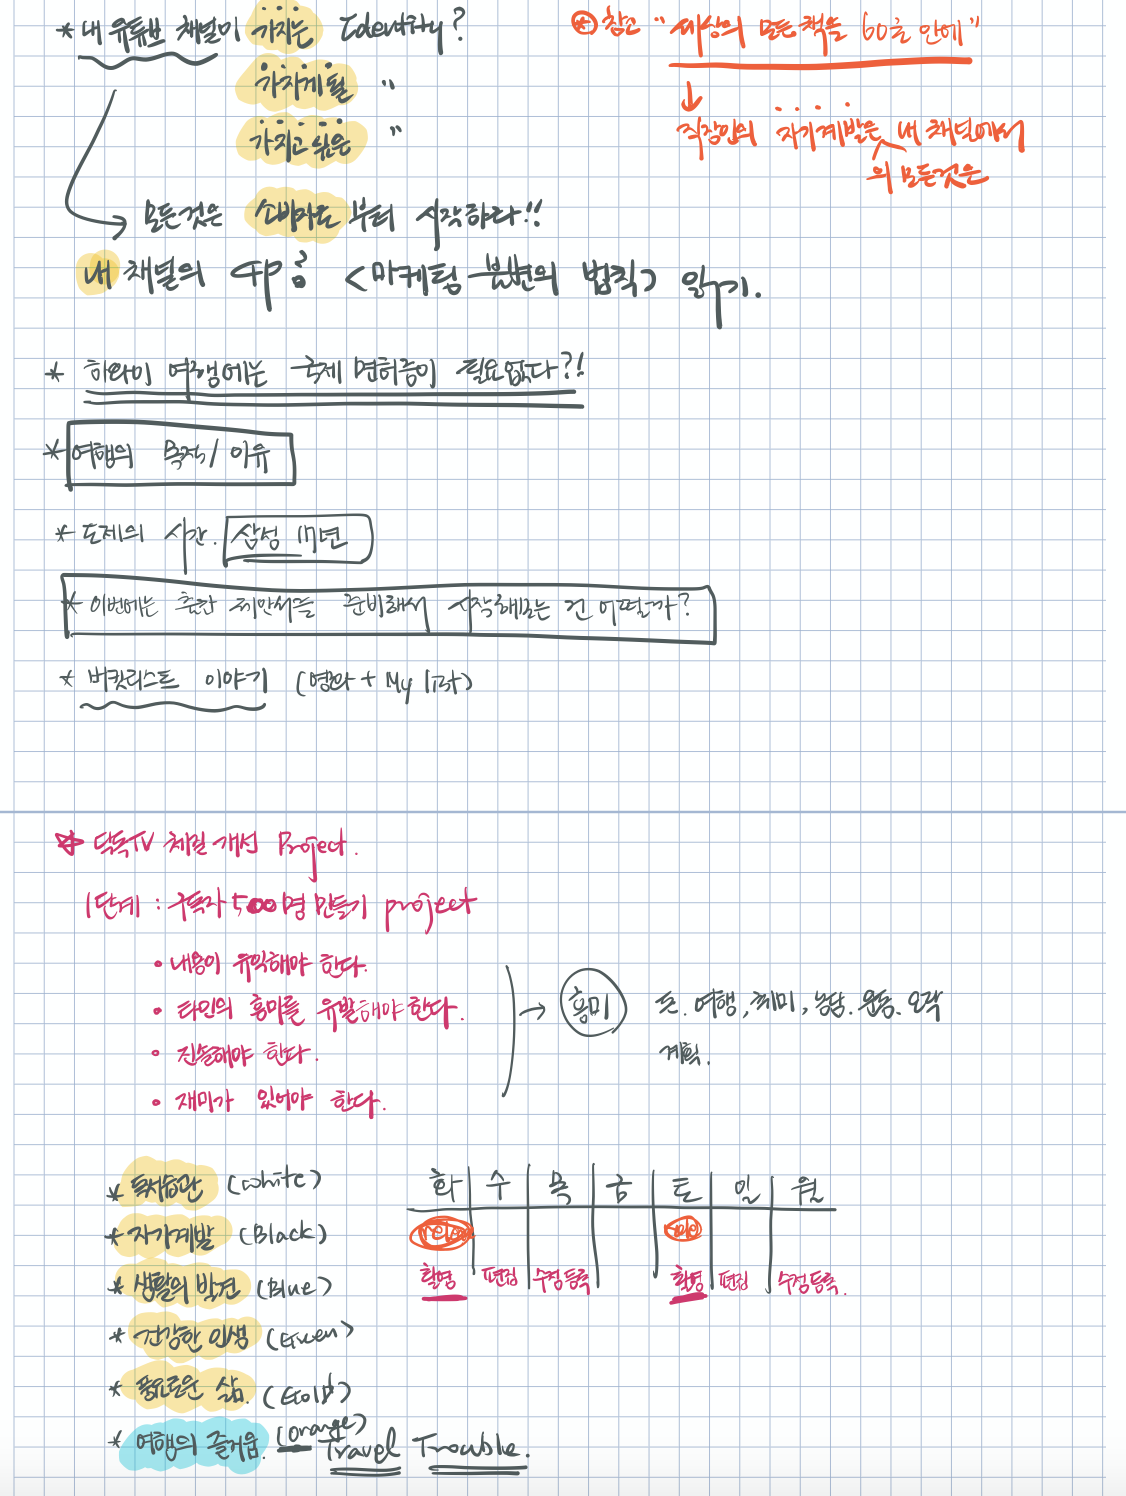 * 내 유튜브 채널이 가지는 Identity?
가지게 될 "
가지고 싶은 "
→ 모든것은 소비자로 부터 시작하다!!
내 채널의 <마케팅 불변의 법칙> 읽기.
* 참고 "세상의 모든 책을 60초 안에"
↓
직장인의 자기계발은 내 채널에서
의 모든것은
* 하와이 여행에는 국제 면허증이 필요없다?!
* 여행의 목적/이유
* 도제의 시간. 삼성 17년
* 이번에는 출판 제안서를 준비해서 시작해보는 건 어떨까?
* 버킷리스트 이야기 (영화 + My list)
단톡TV 채널 개선 Project.
1단계 : 구독자 500명 만들기 project
• 내용이 유익해야 한다.
• 타인의 흥미를 유발해야 한다.
• 진솔해야 한다.
• 재미가 있어야 한다.
→ 흥미 돈. 여행, 취미, 농담. 운동. 오락
계획.
* 독서습관 (White)
* 자기계발 (Black)
* 생활의 발견 (Blue)
* 건강한 인생 (Green)
* 풍요로운 삶. (Gold)
* 여행의 즐거움. (Orange) Travel Trouble.
화 수 목 금 토 일 월
촬영 편집 수정 등록 촬영 편집 수정 등록.